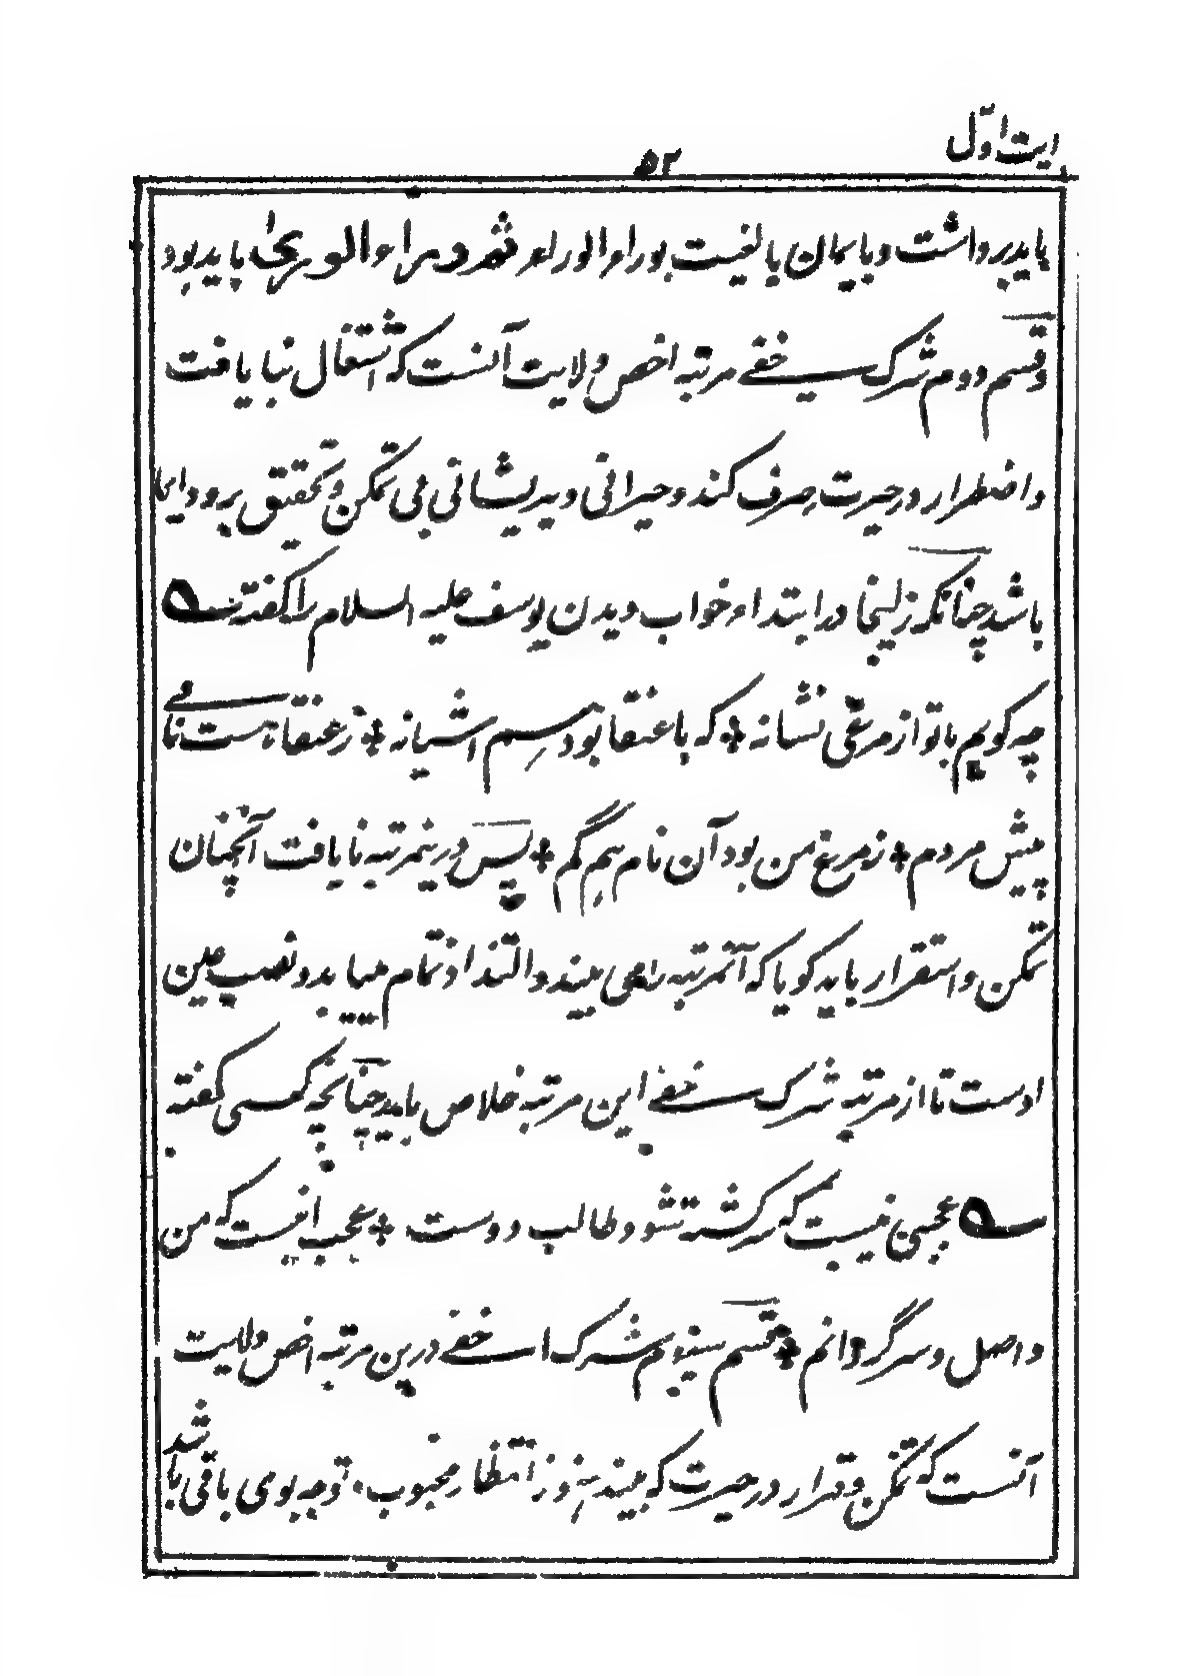 ایت اول
۵۲
باید برداشت و با یمان بالغیب بوراء الوراء ثم وراء الوری باید بود
و قسم دوم شرک خفے مرتبه اخص ولایت آنست که اشتغال نبا یافت
و اضطرار در حیرت صرف کند و حیرانی و پریشانی می تمکن و تحقیق برود ایما
باشد چنانکه زلیخا در ابتداء خواب دیدن یوسف علیه السلام را گفته
چه گویم با تو از مرغی نشانه * که با عنقا بود هم اشیانه * ز عنقا هست نامے
پیش مردم * ز مرغ من بود آن نام هم گم * پس درینمرتبه نا یافت آنچنان
تمکن و استقرار باید گویا که آنمرتبه را همی بیند و التذاذ تمام میابد و نصب عین
اوست تا از مرتبه شرک خفے این مرتبه خلاص باید چنانچه کسی گفته
عجبی نیست که سرگشته شود طالب دوست * عجب اینست که من
واصل و سرگردانم * قسم سیوم شرک اخفے درین مرتبه اخص ولایت
آنست که تمکن و قرار در حیرت که بیند هنوز انتظار محبوب توجه بومی باقی باشد